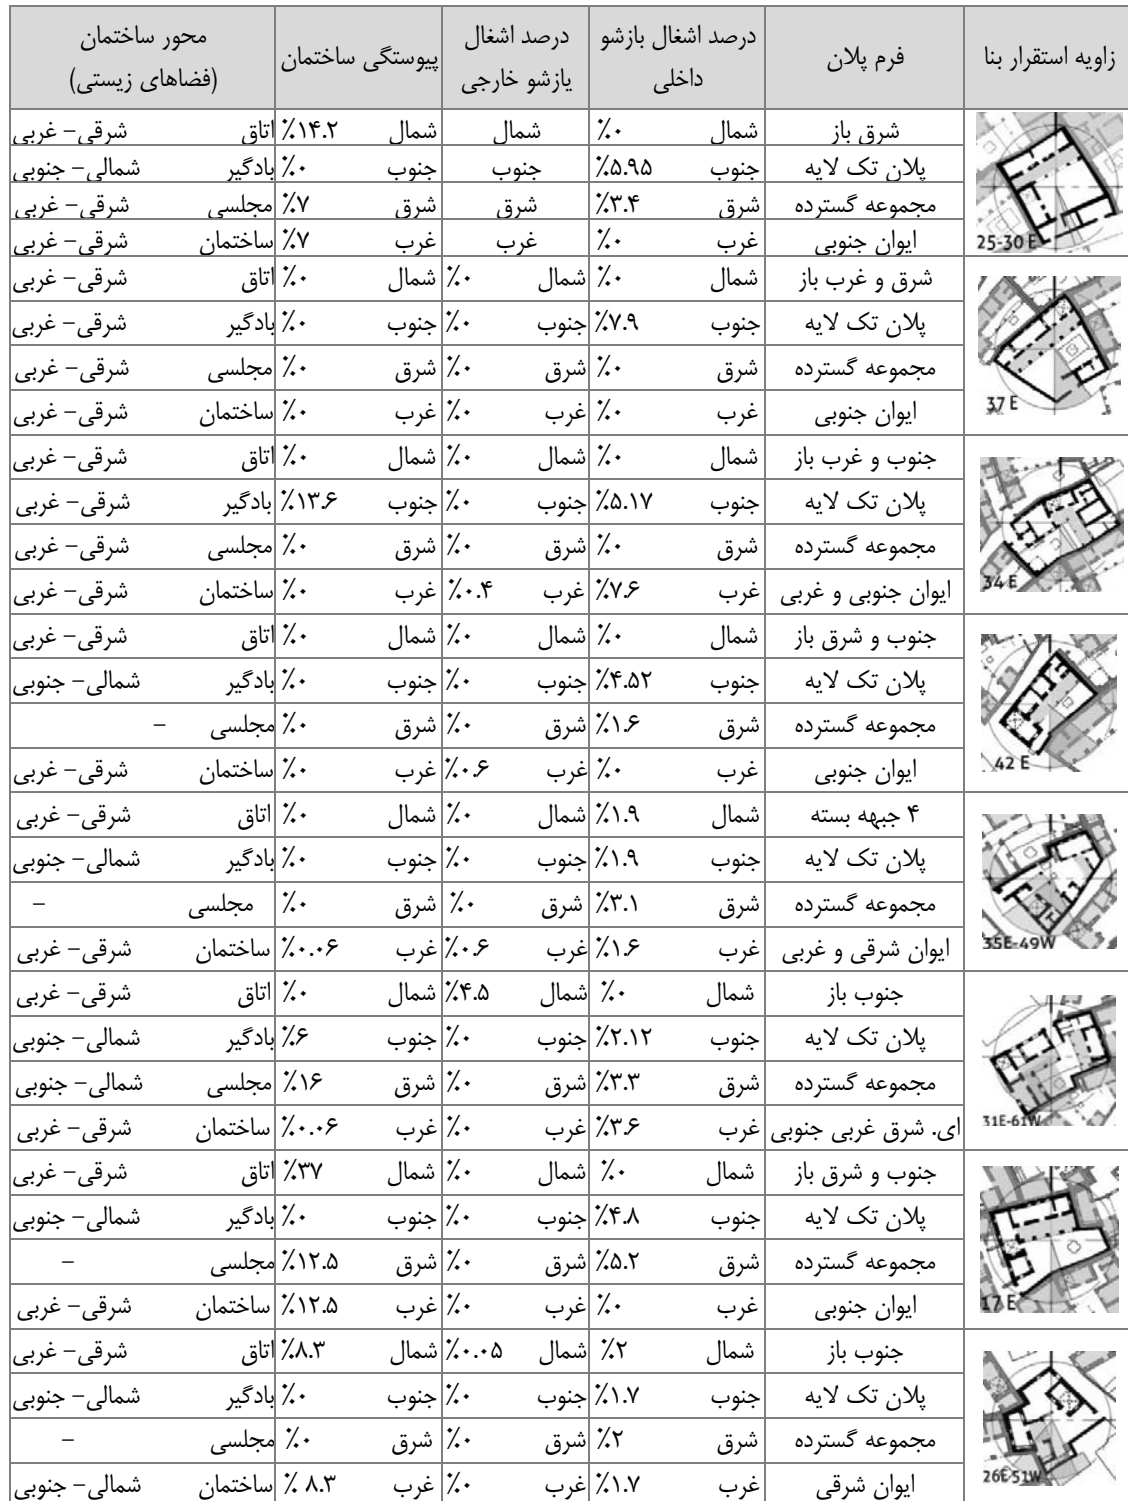 زاویه استقرار بنا | فرم پلان | درصد اشغال بازشو داخلی | درصد اشغال یازشو خارجی | پیوستگی ساختمان | محور ساختمان (فضاهای زیستی)
25-30 E
شرق باز | شمال ۰٪ | شمال | شمال ۱۴.۲٪ | اتاق شرقی- غربی
پلان تک لایه | جنوب ۵.۹۵٪ | جنوب | جنوب ۰٪ | بادگیر شمالی- جنوبی
مجموعه گسترده | شرق ۳.۴٪ | شرق | شرق ۷٪ | مجلسی شرقی- غربی
ایوان جنوبی | غرب ۰٪ | غرب | غرب ۷٪ | ساختمان شرقی- غربی
37 E
شرق و غرب باز | شمال ۰٪ | شمال ۰٪ | شمال ۰٪ | اتاق شرقی- غربی
پلان تک لایه | جنوب ۷.۹٪ | جنوب ۰٪ | جنوب ۰٪ | بادگیر شرقی- غربی
مجموعه گسترده | شرق ۰٪ | شرق ۰٪ | شرق ۰٪ | مجلسی شرقی- غربی
ایوان جنوبی | غرب ۰٪ | غرب ۰٪ | غرب ۰٪ | ساختمان شرقی- غربی
34 E
جنوب و غرب باز | شمال ۰٪ | شمال ۰٪ | شمال ۰٪ | اتاق شرقی- غربی
پلان تک لایه | جنوب ۵.۱۷٪ | جنوب ۰٪ | جنوب ۱۳.۶٪ | بادگیر شرقی- غربی
مجموعه گسترده | شرق ۰٪ | شرق ۰٪ | شرق ۰٪ | مجلسی شرقی- غربی
ایوان جنوبی و غربی | غرب ۷.۶٪ | غرب ۰.۴٪ | غرب ۰٪ | ساختمان شرقی- غربی
42 E
جنوب و شرق باز | شمال ۰٪ | شمال ۰٪ | شمال ۰٪ | اتاق شرقی- غربی
پلان تک لایه | جنوب ۴.۵۲٪ | جنوب ۰٪ | جنوب ۰٪ | بادگیر شمالی- جنوبی
مجموعه گسترده | شرق ۱.۶٪ | شرق ۰٪ | شرق ۰٪ | مجلسی -
ایوان جنوبی | غرب ۰٪ | غرب ۰.۶٪ | غرب ۰٪ | ساختمان شرقی- غربی
35E-49W
۴ جبهه بسته | شمال ۱.۹٪ | شمال ۰٪ | شمال ۰٪ | اتاق شرقی- غربی
پلان تک لایه | جنوب ۱.۹٪ | جنوب ۰٪ | جنوب ۰٪ | بادگیر شمالی- جنوبی
مجموعه گسترده | شرق ۳.۱٪ | شرق ۰٪ | شرق ۰٪ | مجلسی -
ایوان شرقی و غربی | غرب ۱.۶٪ | غرب ۰.۶٪ | غرب ۰.۰۶٪ | ساختمان شرقی- غربی
31E-61W
جنوب باز | شمال ۰٪ | شمال ۴.۵٪ | شمال ۰٪ | اتاق شرقی- غربی
پلان تک لایه | جنوب ۲.۱۲٪ | جنوب ۰٪ | جنوب ۶٪ | بادگیر شمالی- جنوبی
مجموعه گسترده | شرق ۳.۳٪ | شرق ۰٪ | شرق ۱۶٪ | مجلسی شمالی- جنوبی
ای. شرق غربی جنوبی | غرب ۳.۶٪ | غرب ۰٪ | غرب ۰.۰۶٪ | ساختمان شرقی- غربی
17 E
جنوب و شرق باز | شمال ۰٪ | شمال ۰٪ | شمال ۳۷٪ | اتاق شرقی- غربی
پلان تک لایه | جنوب ۴.۸٪ | جنوب ۰٪ | جنوب ۰٪ | بادگیر شمالی- جنوبی
مجموعه گسترده | شرق ۵.۲٪ | شرق ۰٪ | شرق ۱۲.۵٪ | مجلسی -
ایوان جنوبی | غرب ۰٪ | غرب ۰٪ | غرب ۱۲.۵٪ | ساختمان شرقی- غربی
26E-51W
جنوب باز | شمال ۲٪ | شمال ۰.۰۵٪ | شمال ۸.۳٪ | اتاق شرقی- غربی
پلان تک لایه | جنوب ۱.۷٪ | جنوب ۰٪ | جنوب ۰٪ | بادگیر شمالی- جنوبی
مجموعه گسترده | شرق ۲٪ | شرق ۰٪ | شرق ۰٪ | مجلسی -
ایوان شرقی | غرب ۱.۷٪ | غرب ۰٪ | غرب ۸.۳ ٪ | ساختمان شمالی- جنوبی